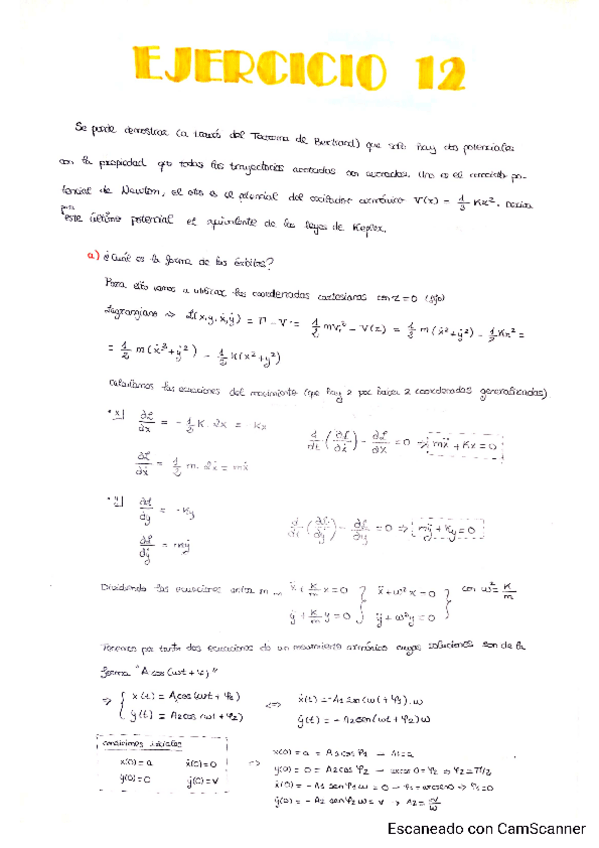 EJERCICIO 12
Se puede demostrar (a través del Teorema de Bertrand) que sólo hay dos potenciales
con la propiedad que todas las trayectorias acotadas son cerradas. Uno es el conocido po-
tencial de Newton, el otro es el potencial del oscilador armónico V(r) = 1/2 Kr². 
para
este último potencial el equivalente de las leyes de Kepler.
a) ¿Cuál es la forma de las órbitas?
Para ello vamos a utilizar las coordenadas cartesianas con z=0 (fijo)
Lagrangiano ⇒ L(x,y,ẋ,ẏ) = T - V = 1/2 m - V(r) = 1/2 m(ẋ²+ẏ²) - 1/2 Kr² =
= 1/2 m(ẋ²+ẏ²) - 1/2 K(x²+y²)
Calculamos las ecuaciones del movimiento (que hay 2 por haber 2 coordenadas generalizadas)
• x| ∂L/∂x = - 1/2 K · 2x = -Kx
d/dt (∂L/∂ẋ) - ∂L/∂x = 0 ⇒ mẍ + Kx = 0
∂L/∂ẋ = 1/2 m · 2ẋ = mẋ
• y| ∂L/∂y = -Ky
d/dt (∂L/∂ẏ) - ∂L/∂y = 0 ⇒ mÿ + Ky = 0
∂L/∂ẏ = mẏ
Dividiendo las ecuaciones entre m ẍ + K/m x = 0 } ẍ + ω²x = 0 } con ω² = K/m
ÿ + K/m y = 0 } ÿ + ω²y = 0 }
Tenemos por tanto dos ecuaciones de un movimiento armónico cuyas soluciones son de la
forma "A cos (ωt + φ)"
⇒ { x(t) = A₁cos(ωt + φ₁) ⇔ ẋ(t) = -A₁ sen(ωt + φ₁)·ω
{ y(t) = A₂cos(ωt + φ₂) ẏ(t) = -A₂sen(ωt + φ₂)ω
condiciones iniciales
x(0) = a ẋ(0) = 0
y(0) = 0 ẏ(0) = v
⇒ x(0) = a = A₁cos φ₁ → A₁ = a
y(0) = 0 = A₂cos φ₂ → arccos 0 = φ₂ ⇒ φ₂ = π/2
ẋ(0) = -A₁ sen φ₁ ω = 0 → φ₁ = arcsen 0 ⇒ φ₁ = 0
ẏ(0) = -A₂ sen φ₂ ω = v → A₂ = v/ω
Escaneado con CamScanner